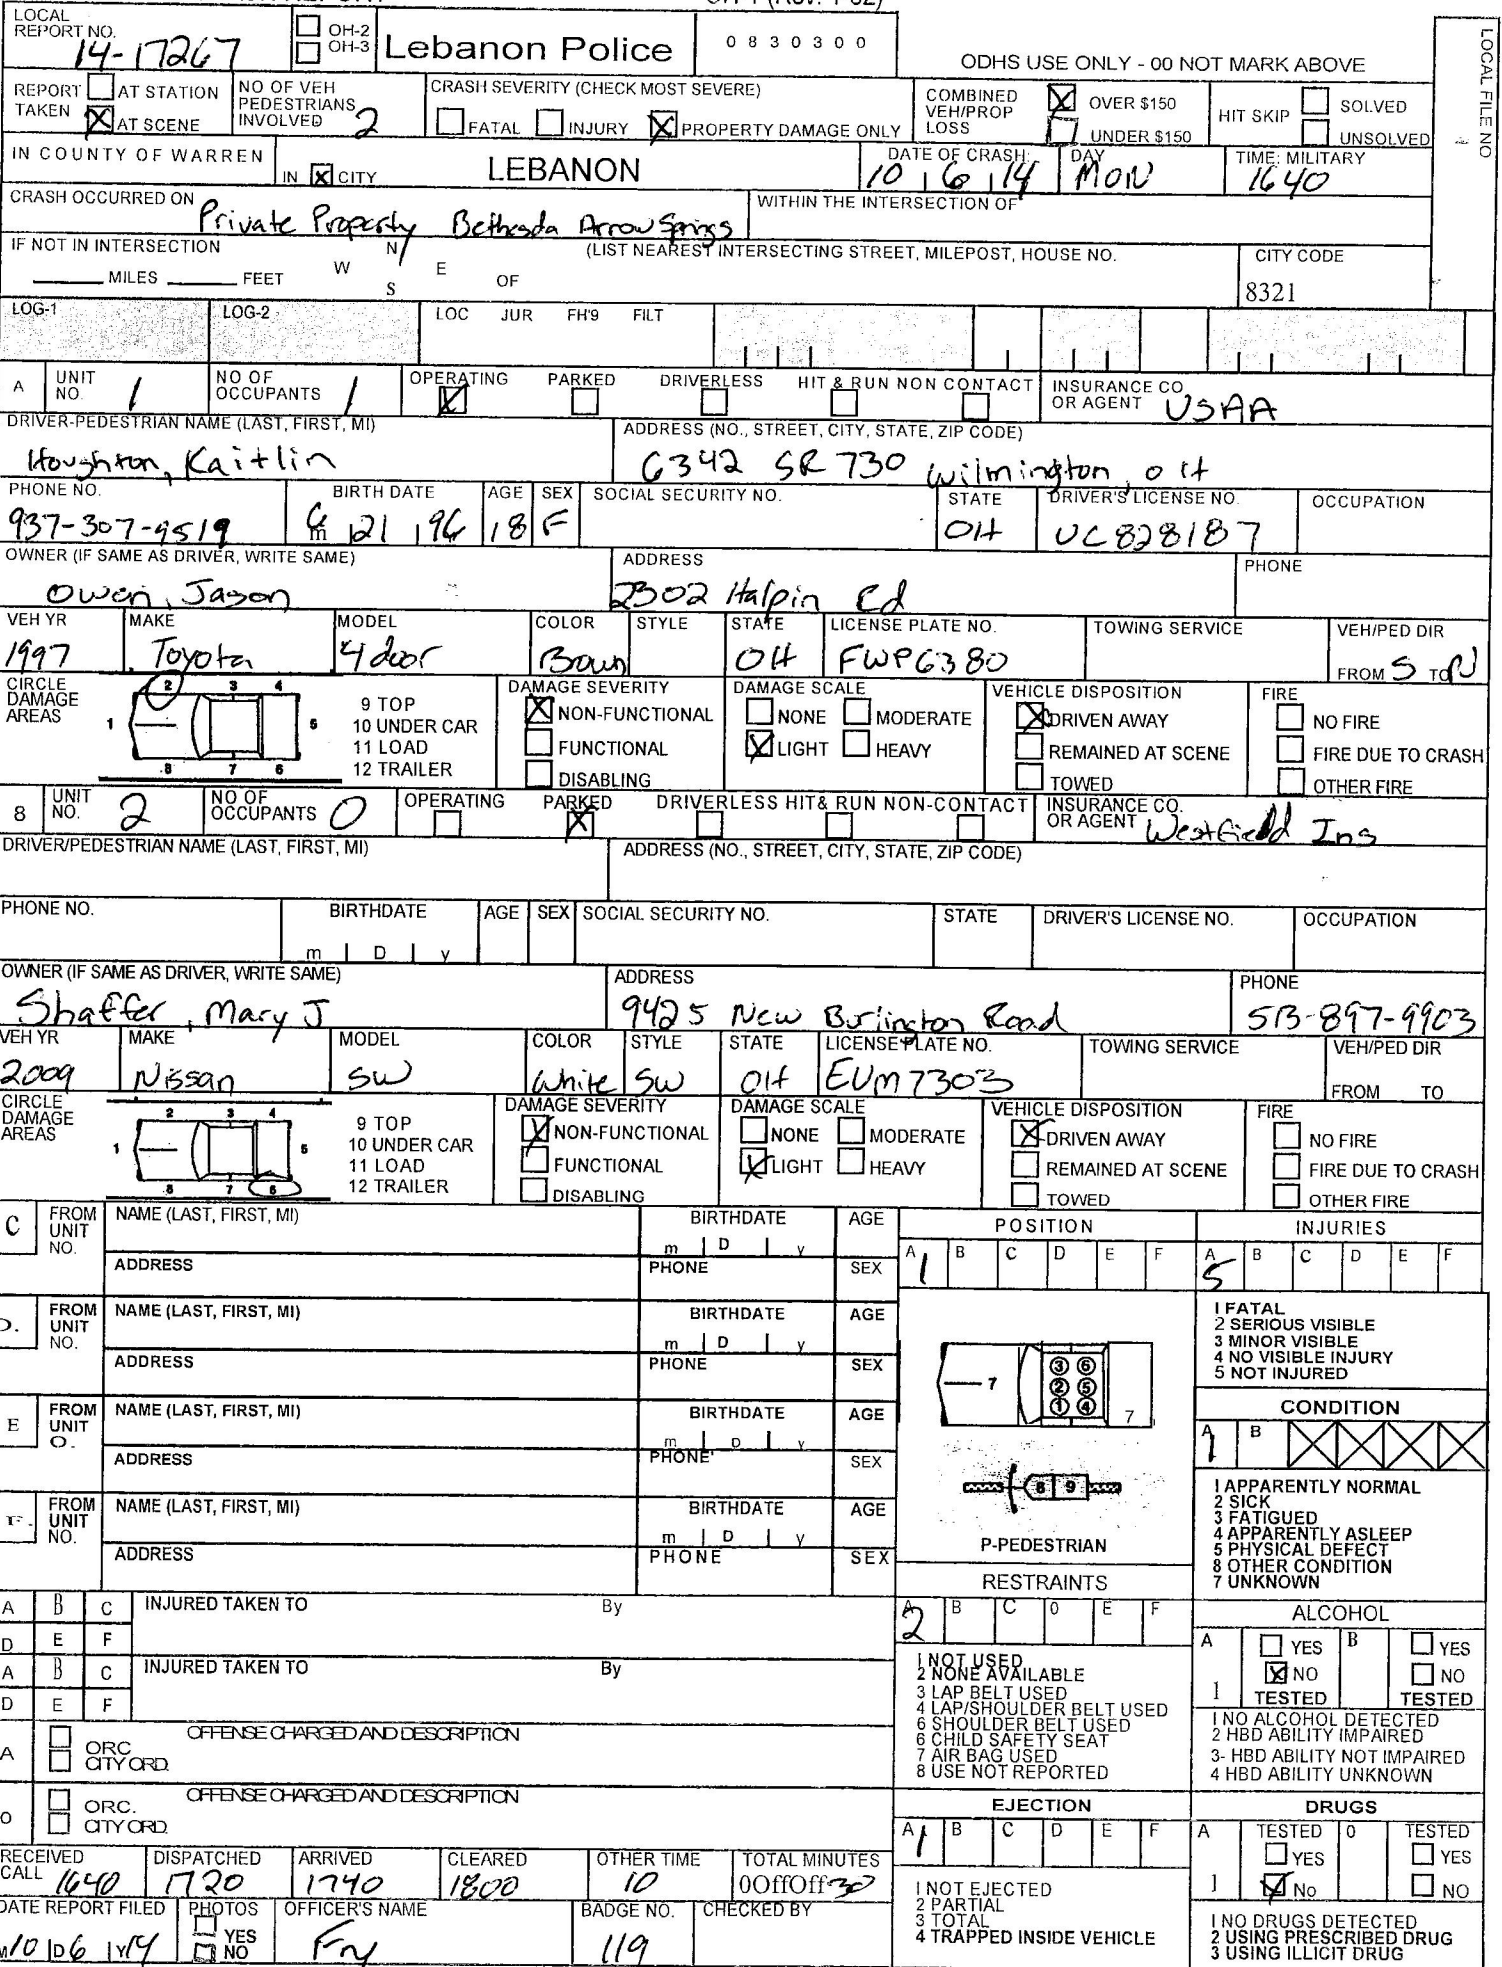 LOCAL REPORT NO. 14-17267 OH-2 OH-3 Lebanon Police 0830300
ODHS USE ONLY - 00 NOT MARK ABOVE
LOCAL FILE NO
REPORT TAKEN AT STATION X AT SCENE NO OF VEH PEDESTRIANS INVOLVED 2
CRASH SEVERITY (CHECK MOST SEVERE) FATAL INJURY X PROPERTY DAMAGE ONLY
COMBINED VEH/PROP LOSS X OVER $150 UNDER $150 HIT SKIP SOLVED UNSOLVED
IN COUNTY OF WARREN IN X CITY LEBANON DATE OF CRASH: 10 6 14 DAY MON TIME: MILITARY 1640
CRASH OCCURRED ON Private Property Bethesda Arrow Springs WITHIN THE INTERSECTION OF
IF NOT IN INTERSECTION MILES FEET N W E S OF (LIST NEAREST INTERSECTING STREET, MILEPOST, HOUSE NO. CITY CODE 8321
LOG-1 LOG-2 LOC JUR FH'9 FILT
A UNIT NO. 1 NO OF OCCUPANTS 1 OPERATING X PARKED DRIVERLESS HIT & RUN NON CONTACT INSURANCE CO OR AGENT USAA
DRIVER-PEDESTRIAN NAME (LAST, FIRST, MI) Houghton, Kaitlin ADDRESS (NO., STREET, CITY, STATE, ZIP CODE) 6342 SR 730 Wilmington, OH
PHONE NO. 937-307-9519 BIRTH DATE 6 m 21 96 AGE 18 SEX F SOCIAL SECURITY NO. STATE OH DRIVER'S LICENSE NO. UC828187 OCCUPATION
OWNER (IF SAME AS DRIVER, WRITE SAME) Owen, Jason ADDRESS 2302 Halpin Rd PHONE
VEH YR 1997 MAKE Toyota MODEL 4 door COLOR Brown STYLE STATE OH LICENSE PLATE NO. FWP6380 TOWING SERVICE VEH/PED DIR FROM S TO N
CIRCLE DAMAGE AREAS 1 2 3 4 5 6 7 8
9 TOP
10 UNDER CAR
11 LOAD
12 TRAILER
DAMAGE SEVERITY X NON-FUNCTIONAL FUNCTIONAL DISABLING
DAMAGE SCALE NONE MODERATE X LIGHT HEAVY
VEHICLE DISPOSITION X DRIVEN AWAY REMAINED AT SCENE TOWED
FIRE NO FIRE FIRE DUE TO CRASH OTHER FIRE
8 UNIT NO. 2 NO OF OCCUPANTS 0 OPERATING PARKED X DRIVERLESS HIT& RUN NON-CONTACT INSURANCE CO. OR AGENT Westfield Ins
DRIVER/PEDESTRIAN NAME (LAST, FIRST, MI) ADDRESS (NO., STREET, CITY, STATE, ZIP CODE)
PHONE NO. BIRTHDATE m D y AGE SEX SOCIAL SECURITY NO. STATE DRIVER'S LICENSE NO. OCCUPATION
OWNER (IF SAME AS DRIVER, WRITE SAME) Shaffer, Mary J ADDRESS 9425 New Burlington Road PHONE 513-897-9903
VEH YR 2009 MAKE Nissan MODEL SW COLOR White STYLE SW STATE OH LICENSE PLATE NO. EUM7303 TOWING SERVICE VEH/PED DIR FROM TO
CIRCLE DAMAGE AREAS 1 2 3 4 5 6 7 8
9 TOP
10 UNDER CAR
11 LOAD
12 TRAILER
DAMAGE SEVERITY X NON-FUNCTIONAL FUNCTIONAL DISABLING
DAMAGE SCALE NONE MODERATE X LIGHT HEAVY
VEHICLE DISPOSITION X DRIVEN AWAY REMAINED AT SCENE TOWED
FIRE NO FIRE FIRE DUE TO CRASH OTHER FIRE
C FROM UNIT NO. NAME (LAST, FIRST, MI) BIRTHDATE m D y AGE
ADDRESS PHONE SEX
D. FROM UNIT NO. NAME (LAST, FIRST, MI) BIRTHDATE m D y AGE
ADDRESS PHONE SEX
E FROM UNIT O. NAME (LAST, FIRST, MI) BIRTHDATE m D y AGE
ADDRESS PHONE SEX
F. FROM UNIT NO. NAME (LAST, FIRST, MI) BIRTHDATE m D y AGE
ADDRESS PHONE SEX
POSITION
A 1 B C D E F
7 3 6 2 5 1 4 7
8 9
P-PEDESTRIAN
INJURIES
A 5 B C D E F
I FATAL
2 SERIOUS VISIBLE
3 MINOR VISIBLE
4 NO VISIBLE INJURY
5 NOT INJURED
CONDITION
A 1 B
I APPARENTLY NORMAL
2 SICK
3 FATIGUED
4 APPARENTLY ASLEEP
5 PHYSICAL DEFECT
8 OTHER CONDITION
7 UNKNOWN
A B C INJURED TAKEN TO By
D E F
A B C INJURED TAKEN TO By
D E F
A ORC CITY ORD. OFFENSE CHARGED AND DESCRIPTION
O ORC. CITY ORD. OFFENSE CHARGED AND DESCRIPTION
RESTRAINTS
A 2 B C 0 E F
I NOT USED
2 NONE AVAILABLE
3 LAP BELT USED
4 LAP/SHOULDER BELT USED
6 SHOULDER BELT USED
6 CHILD SAFETY SEAT
7 AIR BAG USED
8 USE NOT REPORTED
ALCOHOL
A 1 YES X NO TESTED B YES NO TESTED
I NO ALCOHOL DETECTED
2 HBD ABILITY IMPAIRED
3- HBD ABILITY NOT IMPAIRED
4 HBD ABILITY UNKNOWN
EJECTION
A 1 B C D E F
I NOT EJECTED
2 PARTIAL
3 TOTAL
4 TRAPPED INSIDE VEHICLE
DRUGS
A 1 TESTED YES X No 0 TESTED YES NO
I NO DRUGS DETECTED
2 USING PRESCRIBED DRUG
3 USING ILLICIT DRUG
RECEIVED CALL 1640 DISPATCHED 1720 ARRIVED 1740 CLEARED 1800 OTHER TIME 10 TOTAL MINUTES 0OffOff 30
DATE REPORT FILED M 10 D 6 Y 14 PHOTOS YES NO OFFICER'S NAME Fry BADGE NO. 119 CHECKED BY